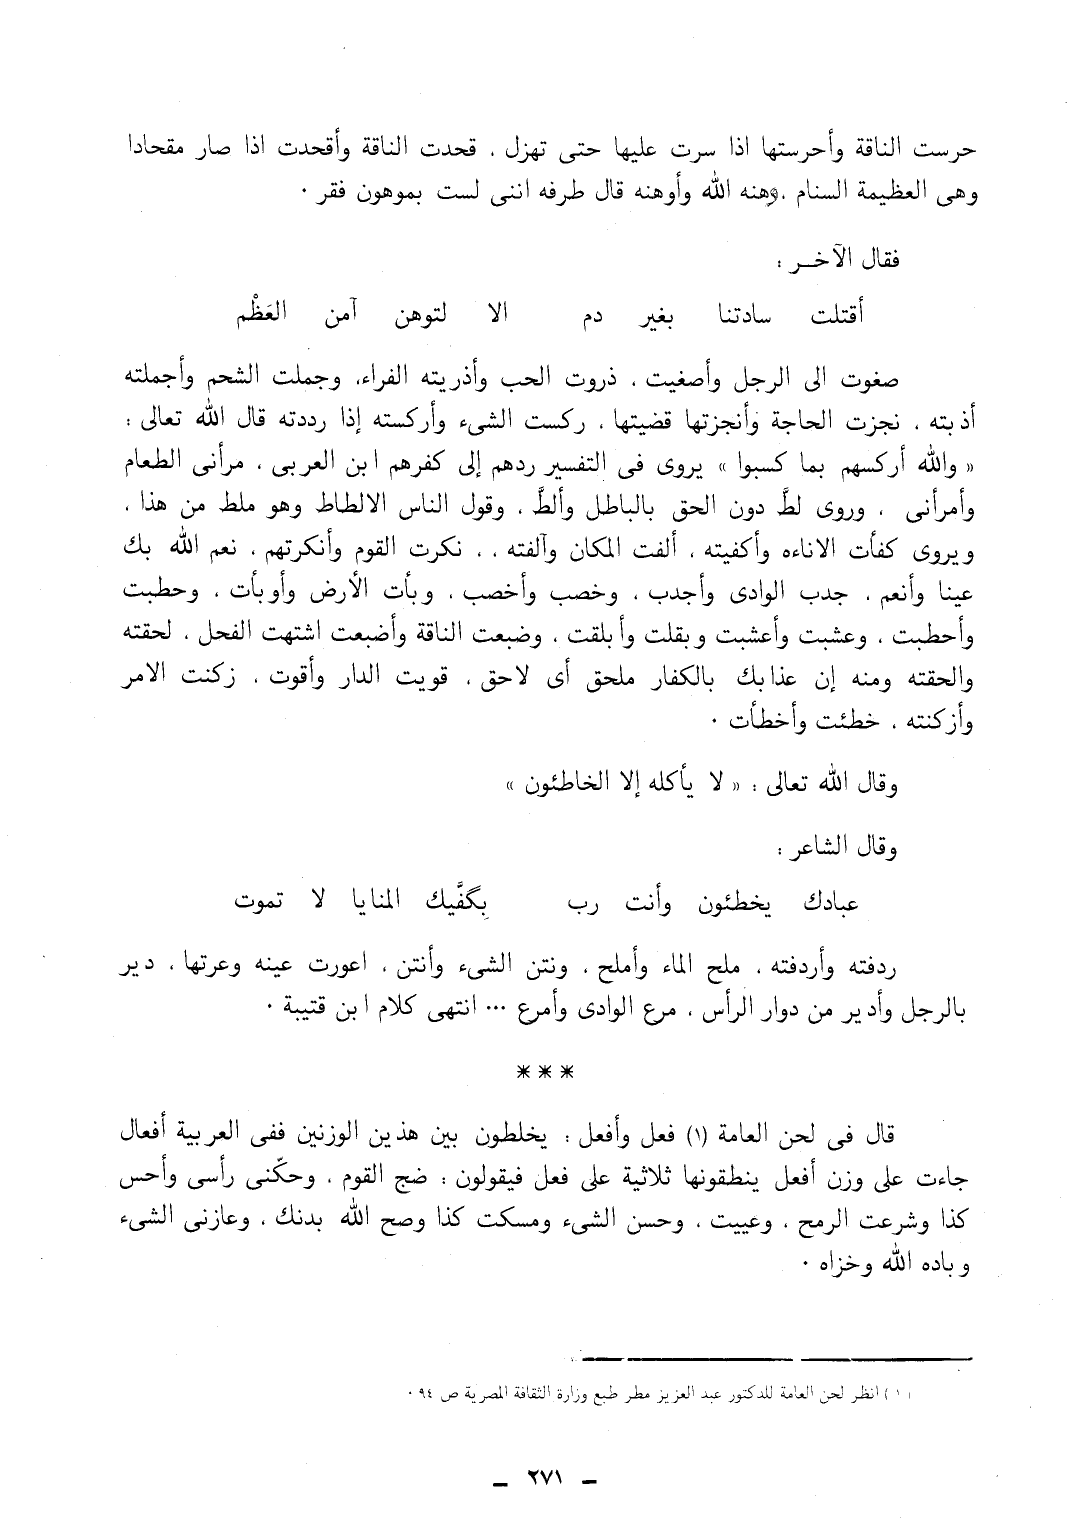 حرست الناقة وأحرستها اذا سرت عليها حتى تهزل ، قحدت الناقة وأقحدت اذا صار مقحادا
وهى العظيمة السنام ،وهنه الله وأوهنه قال طرفه اننى لست بموهون فقر .
فقال الآخــر :
أقتلت سادتنا بغير دم الا لتوهن آمن العَظْم
صغوت الى الرجل وأصغيت ، ذروت الحب وأذريته الفراء، وجملت الشحم وأجملته
أذبته ، نجزت الحاجة وأنجزتها قضيتها ، ركست الشىء وأركسته إذا رددته قال الله تعالى :
« والله أركسهم بما كسبوا » يروى فى التفسير ردهم إلى كفرهم ابن العربى ، مرأنى الطعام
وأمرأنى ، وروى لطَّ دون الحق بالباطل وألطَّ ، وقول الناس الالطاط وهو ملط من هذا ،
ويروى كفأت الاناءه وأكفيته ، ألفت المكان وآلفته ، ، نكرت القوم وأنكرتهم ، نعم الله بك
عينا وأنعم ، جدب الوادى وأجدب ، وخصب وأخصب ، وبأت الأرض وأوبأت ، وحطبت
وأحطبت ، وعشبت وأعشبت وبقلت وأبلقت ، وضبعت الناقة وأضبعت اشتهت الفحل ، لحقته
والحقته ومنه إن عذابك بالكفار ملحق أى لاحق ، قويت الدار وأقوت ، زكنت الامر
وأزكنته ، خطئت وأخطأت .
وقال الله تعالى : « لا يأكله إلا الخاطئون »
وقال الشاعر :
عبادك يخطئون وأنت رب بِگفَّيك المنايا لا تموت
ردفته وأردفته ، ملح الماء وأملح ، ونتن الشىء وأنتن ، اعورت عينه وعرتها ، دير
بالرجل وأدير من دوار الرأس ، مرع الوادى وأمرع ... انتهى كلام ابن قتيبة .
* * *
قال فى لحن العامة (١) فعل وأفعل : يخلطون بين هذين الوزنين ففى العربية أفعال
جاءت على وزن أفعل ينطقونها ثلاثية على فعل فيقولون : ضج القوم ، وحكّنى رأسى وأحس
كذا وشرعت الرمح ، وعييت ، وحسن الشىء ومسكت كذا وصح الله بدنك ، وعازنى الشىء
وباده الله وخزاه .
(١) انظر لحن العامة للدكتور عبد العزيز مطر طبع وزارة الثقافة المصرية ص ٩٤ .
ـ ٢٧١ ـ